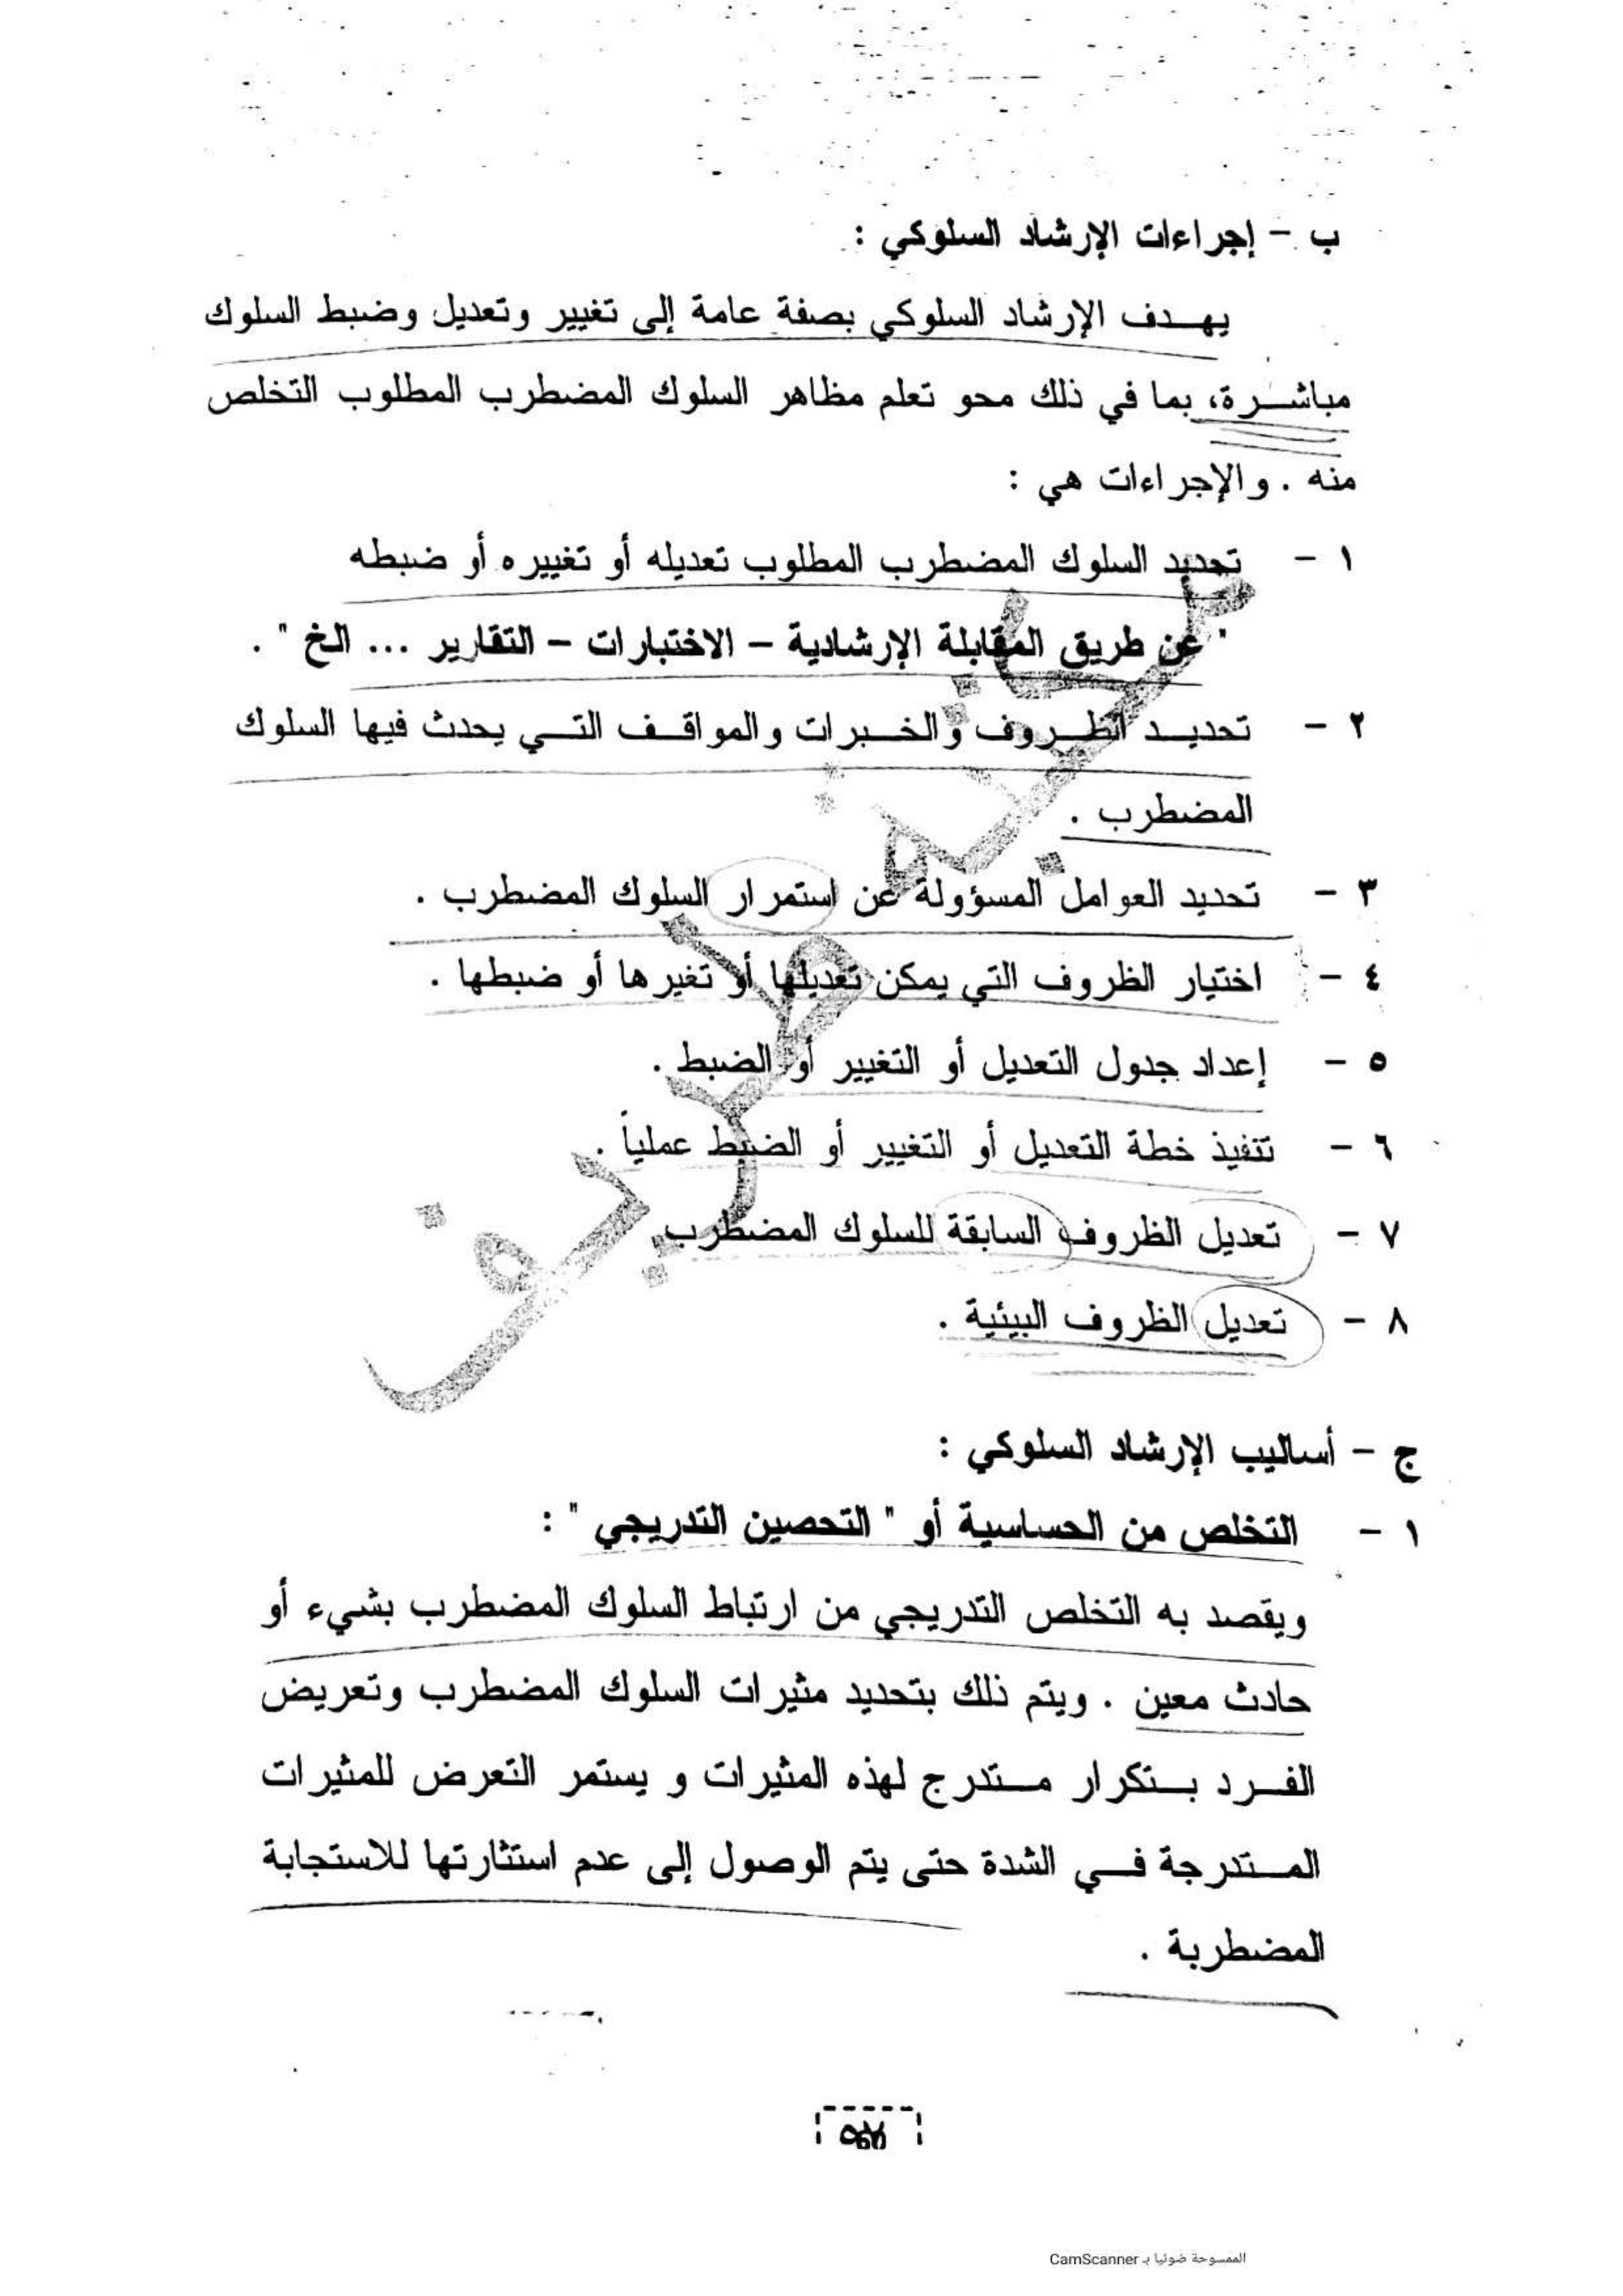 ب - إجراءات الإرشاد السلوكي :
يهدف الإرشاد السلوكي بصفة عامة إلى تغيير وتعديل وضبط السلوك
مباشرة، بما في ذلك محو تعلم مظاهر السلوك المضطرب المطلوب التخلص
منه . والإجراءات هي :
١ - تحديد السلوك المضطرب المطلوب تعديله أو تغييره أو ضبطه
" عن طريق المقابلة الإرشادية – الاختبارات – التقارير ... الخ " .
٢ - تحديد الظروف والخبرات والمواقف التي يحدث فيها السلوك
المضطرب .
٣ - تحديد العوامل المسؤولة عن استمرار السلوك المضطرب .
٤ - اختيار الظروف التي يمكن تعديلها أو تغيرها أو ضبطها .
٥ - إعداد جدول التعديل أو التغيير أو الضبط .
٦ - تنفيذ خطة التعديل أو التغيير أو الضبط عملياً .
٧ - تعديل الظروف السابقة للسلوك المضطرب
٨ - تعديل الظروف البيئية .
ج - أساليب الإرشاد السلوكي :
١ - التخلص من الحساسية أو " التحصين التدريجي " :
ويقصد به التخلص التدريجي من ارتباط السلوك المضطرب بشيء أو
حادث معين . ويتم ذلك بتحديد مثيرات السلوك المضطرب وتعريض
الفرد بتكرار متدرج لهذه المثيرات و يستمر التعرض للمثيرات
المتدرجة في الشدة حتى يتم الوصول إلى عدم استثارتها للاستجابة
المضطربة .
الممسوحة ضوئيا بـ CamScanner